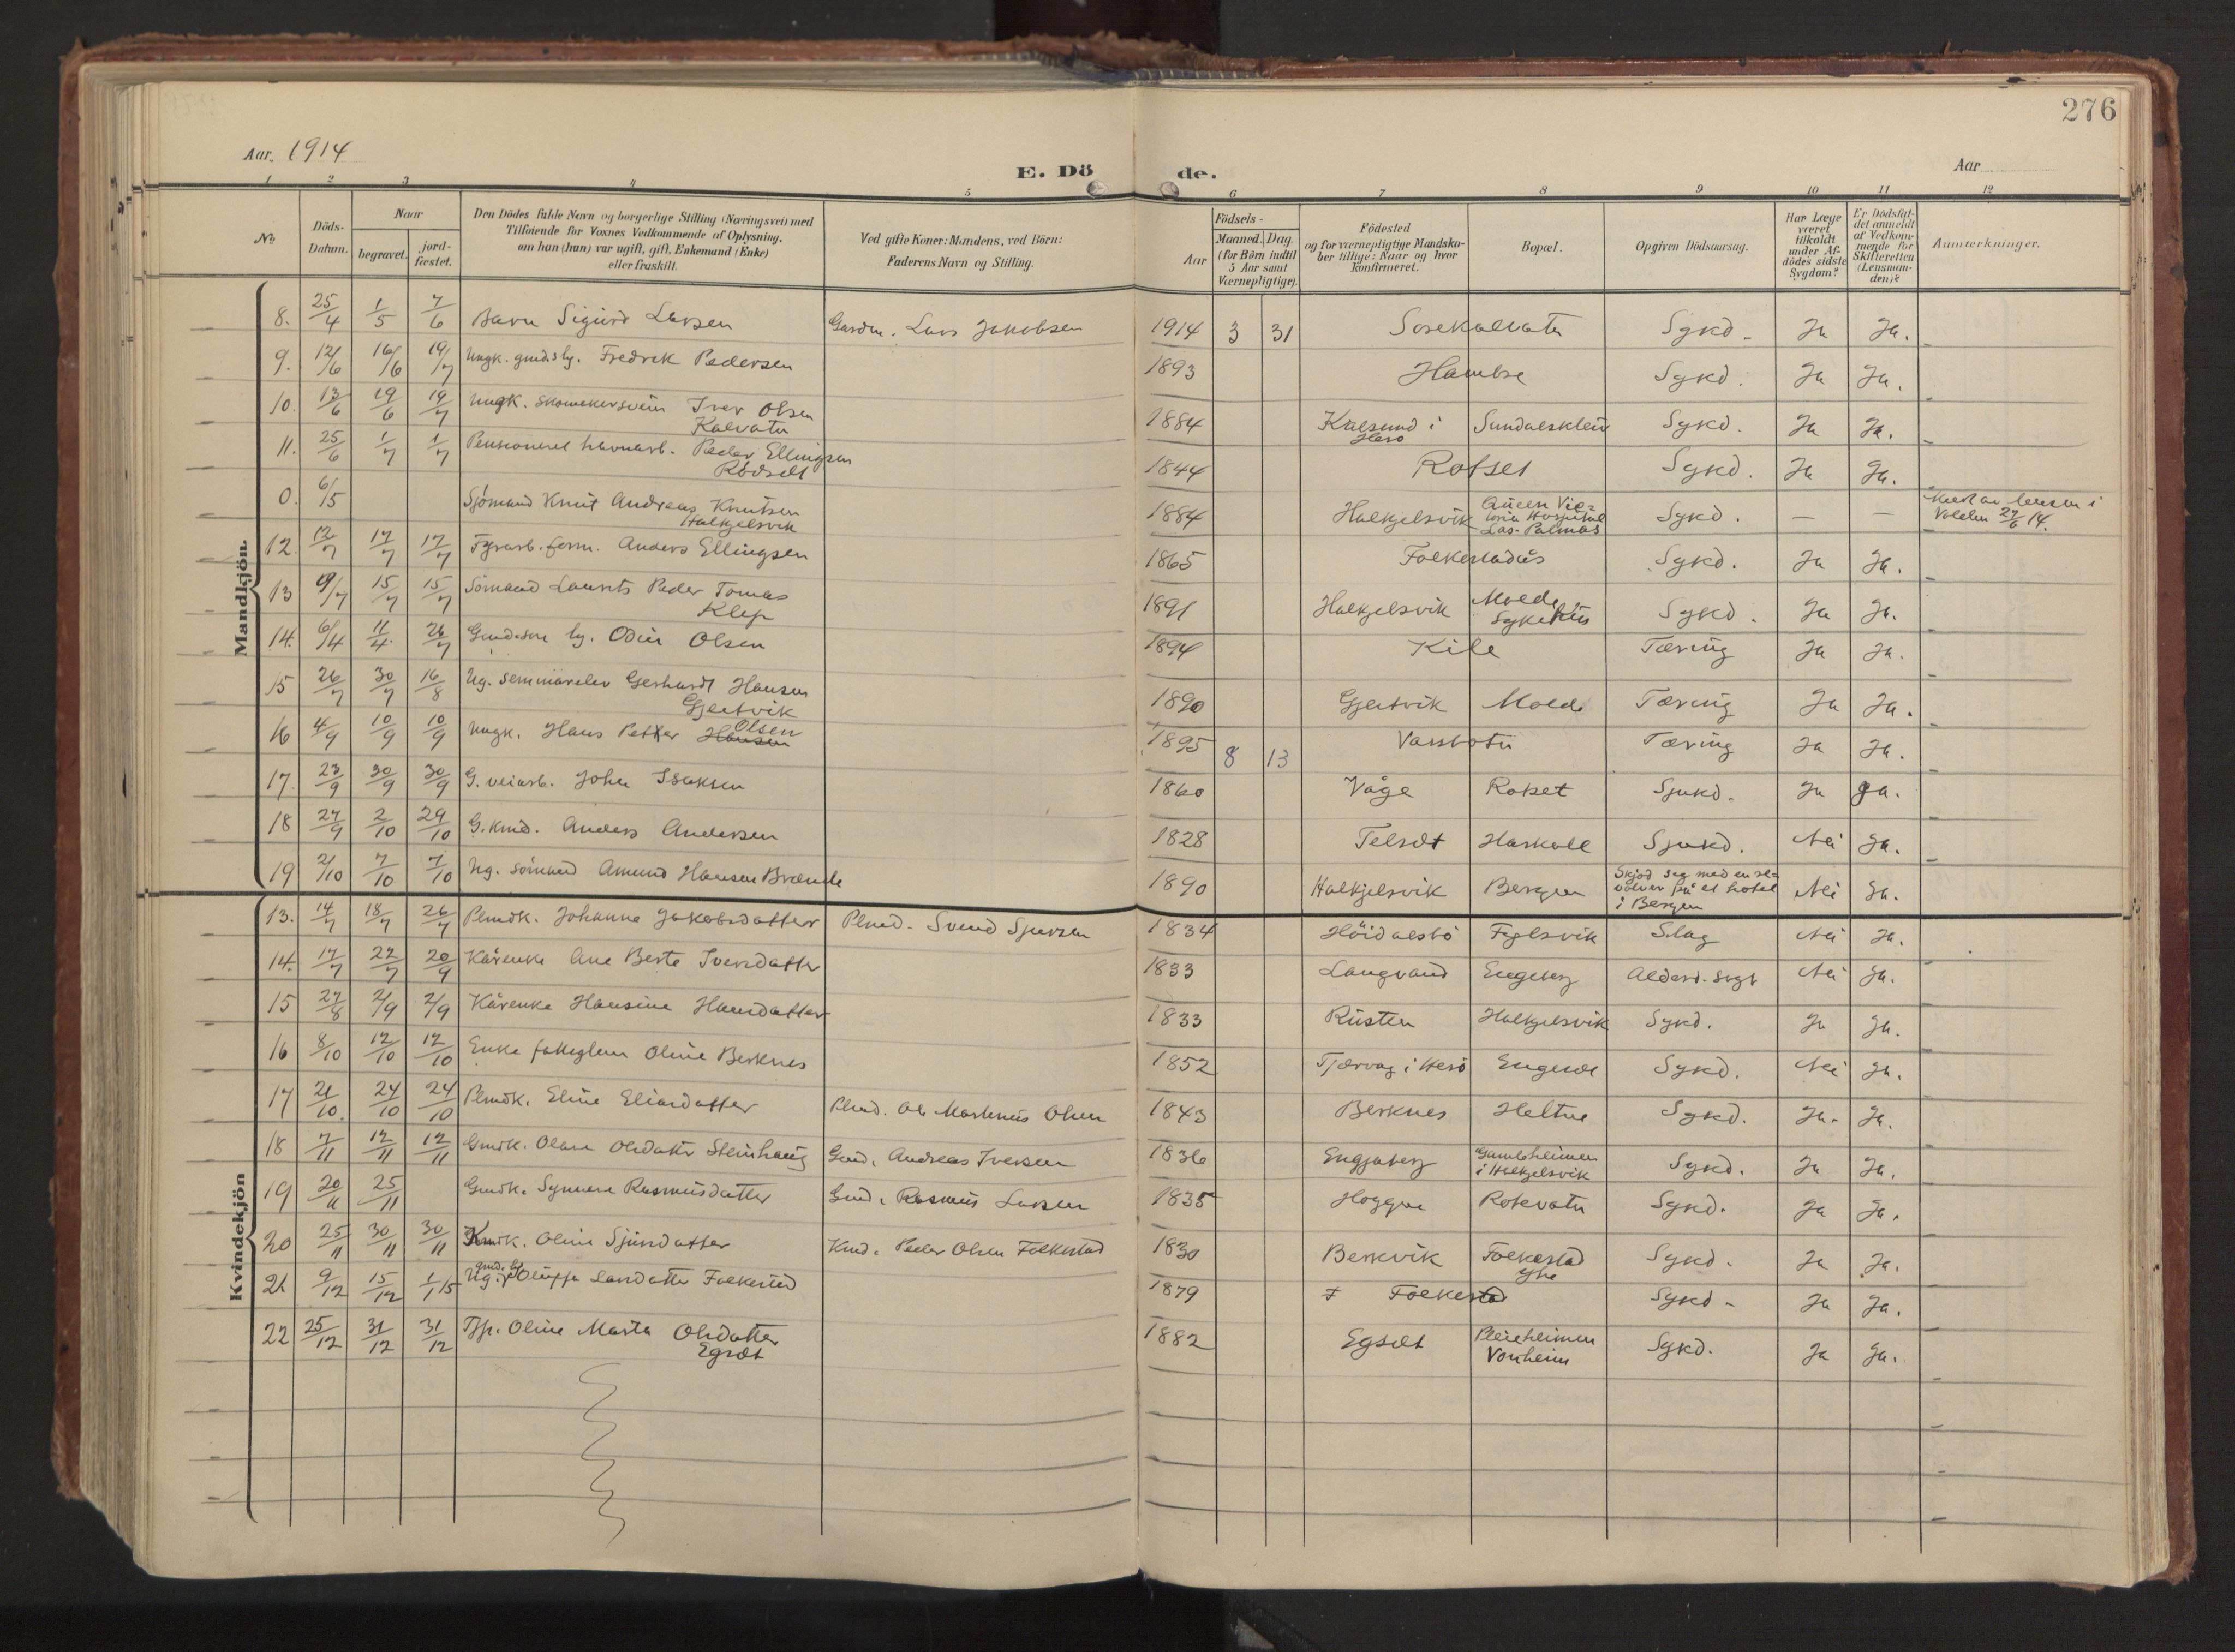 276
Aar. 1914
E. Dö de.
Aar
1 2 3 4 5 6 7 8 9 10 11 12
No.
Döds-Datum.
Naar
begravet.
jord-fæstet.
Den Dödes fulde Navn og borgerlige Stilling (Næringsvei) med
Tilföiende for Voxnes Vedkommende af Oplysning,
om han (hun) var ugift, gift, Enkemand (Enke)
eller fraskilt.
Ved gifte Koner: Mandens, ved Börn:
Faderens Navn og Stilling.
Födsels-
Aar
Maaned. Dag.
(for Börn indtil
5 Aar samt
Værnepligtige).
Födested
og for værnepligtige Mandska-
ber tillige: Naar og hvor
konfirmeret.
Bopæl.
Opgiven Dödsaarsag.
Har Læge
været
tilkaldt
under Af-
dödes sidste
Sygdom?
Er Dödsfal-
det anmeldt
af Vedkom-
mende for
Skifteretten
(Lensman-
den)?
Anmærkninger.
Mandkjön.
8. 25/4 1/5 7/6 Barn Sigurd Larsen Gardm. Lars Jakobsen 1914 3 31 Sorekalvatn Sykd. Ja Ja.
9. 12/6 16/6 19/7 Ungk. gmds. Fredrik Pedersen 1893 Hambre Sykd. Ja Ja.
10. 13/6 19/6 19/7 Ungk. skomakersvein Iver Olsen
Kalvatn 1884 Kalsund i
Herö Sundalsklein Sykd. Ja Ja.
11. 25/6 1/7 1/7 Pensioneret havnarb. Peder Ellingsen
Rödset 1844 Rotset Sykd. Ja Ja.
0. 6/5 Sjömand Knut Andreas Knutsen
Halkjelsvik 1884 Halkjelsvik Queen Vic-
toria Hospital
Las-Palmas Sykd. — — Meld av lensm i
Volden 27/6 14.
12. 12/7 17/7 17/7 Fyrarb. form. Anders Ellingsen 1865 Folkestadås Sykd. Ja Ja.
13 9/7 15/7 15/7 Sömand Laurits Peder Tomas
Klep 1891 Halkjelsvik Molde
Sykehus Sykd. Ja Ja.
14. 6/4 11/4 26/7 Gmds. sön ug. Odin Olsen 1894 Kile Tæring Ja Ja.
15 26/7 30/7 16/8 Ug. seminarelev Gerhardt Hansen
Gjertvik 1890 Gjertvik Molde Tæring Ja Ja.
16 4/9 10/9 10/9 Ungk. Hans Petter Hansen Olsen 1895 8 13 Vassbotn Tæring Ja Ja.
17. 23/9 30/9 30/9 G. veiarb. John Isaksen 1860 Våge Rotset Sjukd. Ja Ja.
18 27/9 2/10 29/10 G. kmd. Anders Andersen 1828 Telset Haskoll Sjukd. Nei Ja.
19 2/10 7/10 7/10 Ug. sömand Amund Hansen Brænde 1890 Halkjelsvik Bergen Skjöd seg med en re-
volver på et hotel
i Bergen Nei Ja.
Kvindekjön
13. 14/7 18/7 26/7 Plmdk. Johanna Jakobsdatter Plmd. Svend Sjursen 1834 Höidalsbö Fyelsvik Slag Nei Ja.
14. 17/7 22/7 20/9 Kårenke Ane Berte Iversdatter 1833 Langvand Engeberg Alderd. svgh Nei Ja.
15 27/8 2/9 2/9 Kårenke Hansine Hansdatter 1833 Rusten Halkjelsvik Sykd. Ja Ja.
16 8/10 12/10 12/10 Enke fatteglem Oline Berknes 1852 Tjörvag i Herö Engeset Sykd. Nei Ja.
17 21/10 24/10 24/10 Plmdk. Eline Eliasdatter Plmd. Ole Martinus Olsen 1843 Berknes Heltne Sykd. Ja. Ja.
18 7/11 12/11 12/11 Gmdk. Olave Olsdatter Steinhaug Gmd. Andreas Iversen 1836 Engjaberg Gamleheimen
i Halkjelsvik Sykd. Ja Ja.
19 20/11 25/11 Gmdk. Synnøve Rasmusdatter Gmd. Rasmus Larsen 1835 Hoggen Rotevatn Sykd. Ja Ja.
20 25/11 30/11 30/11 Kmdk. Oline Sjursdatter Kmd. Peder Olsen Folkestad 1830 Berkvik Folkestad
Yhe Sykd. Ja Ja.
21 9/12 15/12 1/1 15 Ug. gmd. Oluffa Larsdatter Folkestad 1879 Folkestad Sykd. Ja Ja.
22 25/12 31/12 31/12 Tjp. Oline Marta Olsdatter
Egset 1882 Egset Pleieheimen
Vonheim Sykd. Ja Ja.